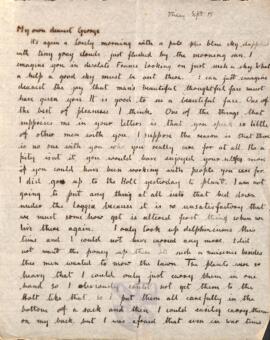 Friday Sept. 15
My own dearest George
It's again a lovely morning with a pale blue sky
with tiny grey clouds just flushed by the morning sun. I
imagine you in desolate France looking on just such a sky. What
a help a good sky must be out there. I can just imagine
dearest the joy that man's beautiful thoughtful face must
have given you. It is good to see a beautiful face. One of
the best of pleasures I think. One of the things that
surprises me in your letters is that you speak so little
of other men with you. I suppose the reason is that there
is no one with you who you really care for at all. Its a
pity isn't it you would have enjoyed your self so much more
if you could have been working with people you care for.
I did go up to the Holt yesterday to plant. I am not
going to put any thing at all into that bed down
under the loggia because it is so unsatisfactory that
we must some how get it altered first thing when we
live there again. I only took up delphiniums this
time and I could not have moved any more. I did
not want the peony up there it's such a nuisance besides
these men wanted to mow the lawn. The plants were so
heavy that I could only just carry them in one
hand so I obviously could not get them to the
Holt like that. So I put them all carefully in the
bottom of a sack and then I could easily carry them
on my back, but I was afraid that even in war time